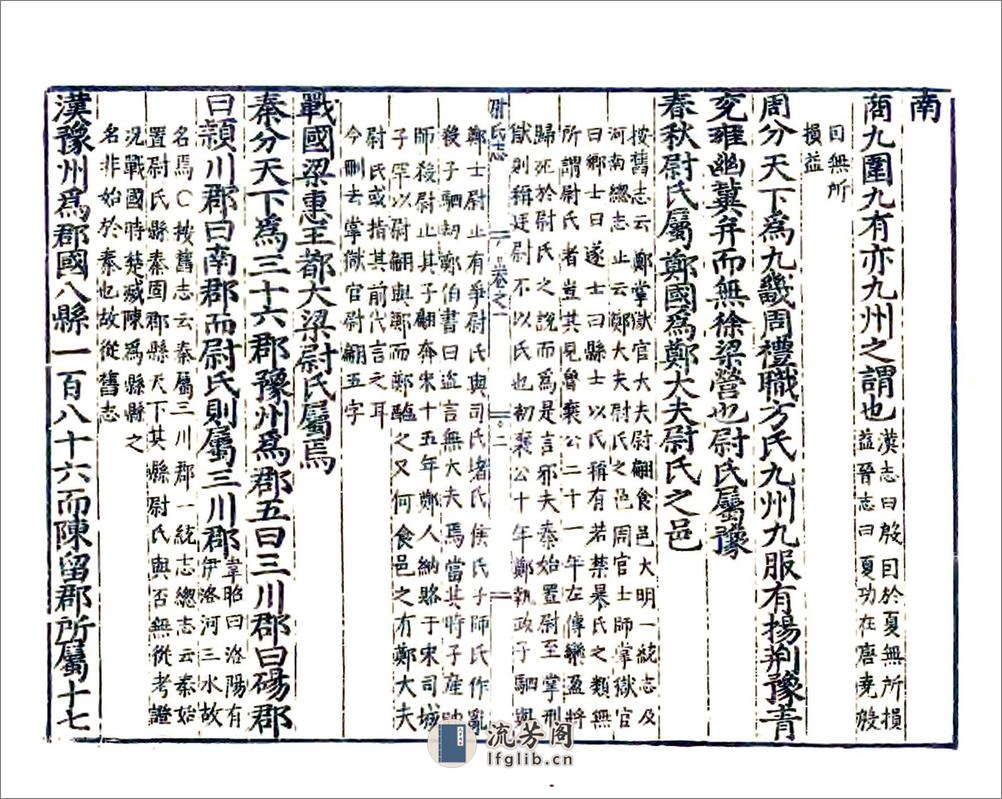 南
商九圍九有亦九州之謂也漢志曰殷因於夏無所損
益晉志曰夏功在唐堯殷
因無所
損益
周分天下爲九畿周禮職方氏九州九服有揚荆豫青
兖雍幽冀并而無徐梁營也尉氏屬豫
春秋尉氏屬鄭國爲鄭大夫尉氏之邑
按舊志云鄭掌獄官大夫尉翩食邑大明一統志及
河南總志止云鄭大夫尉氏之邑周官士師掌獄官
曰鄉士曰遂士曰縣士以氏稱有若禁暴氏之類無
所謂尉氏者豈其見魯襄公二十一年左傳欒盈將
歸死於尉氏之說而爲是言邪夫秦始置尉至掌刑
獄則稱廷尉不以氏也初襄公十年鄭執政子駟與
尉氏志 卷之一 二
鄭士尉止有爭尉氏與司氏堵氏侯氏子師氏作亂
殺子駟劫鄭伯書曰盜言無大夫焉當其時子産
師殺尉止其子翩奔宋十五年鄭人納賂于宋司城
子罕以尉翩與鄭而鄭醢之又何食邑之有鄭大夫
尉氏或指其前代言之耳
今刪去掌獄官尉翩五字
戰國梁惠王都大梁尉氏屬焉
秦分天下爲三十六郡豫州爲郡五曰三川郡曰碭郡
曰潁川郡曰南郡而尉氏則屬三川郡韋昭曰洛陽有
伊洛河三水故
名焉○按舊志云秦屬三川郡一統志總志云秦始
置尉氏縣秦固郡縣天下其縣尉氏與否無從考證
況戰國時楚臧陳爲縣縣之
名非始於秦也故從舊志
漢豫州爲郡國八縣一百八十六而陳留郡所屬十七
流芳阁
lfglib.cn